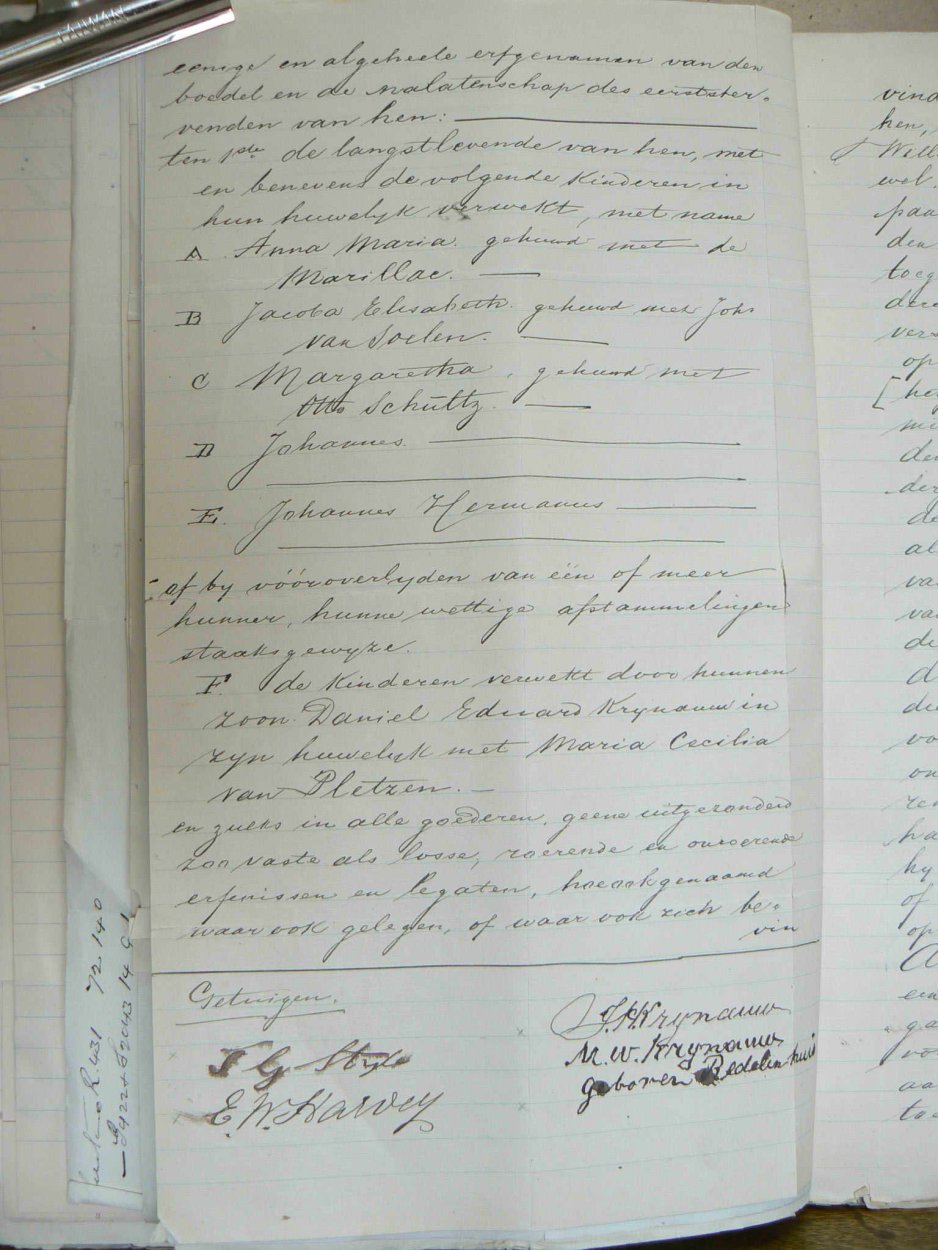 TAIWAN
eenige en algeheele erfgenamen van den
boedel en de nalatenschap des eerstster-
venden van hen:
ten 1ste de langstlevende van hen, met
en benevens de volgende kinderen in
hun huwelyk verwekt, met name
A Anna Maria. gehuwd met de
Marillac.
B Jacoba Elisabeth. gehuwd met Johs
van Soelen.
C Margaretha, gehuwd met
Otto Schultz.
D Johannes.
E. Johannes Hermanus
of by vóóroverlyden van één of meer
hunner, hunne wettige afstammelingen
staaksgewyze.
F. de kinderen verwekt door hunnen
zoon Daniel Eduard Krynauw in
zyn huwelyk met Maria Cecilia
van Pletzen.
en zulks in alle goederen, geene uitgezonderd
zoo vaste als losse, roerende en onroerende
erfenissen en legaten, hoe ook genaamd
waar ook gelegen, of waar ook zich be-
vin
Getuigen.
E. W. Harvey
J. H. Krynauw
M. W. Krynauw
geboren Redelinhuis
vind
hen,
Will
wel.
paa
den
toeg
dere
vers
op
[ he
min
den
der
de
al
va
va
de
d
du
vo
on
ha
hy
of
op
een
aa
toe